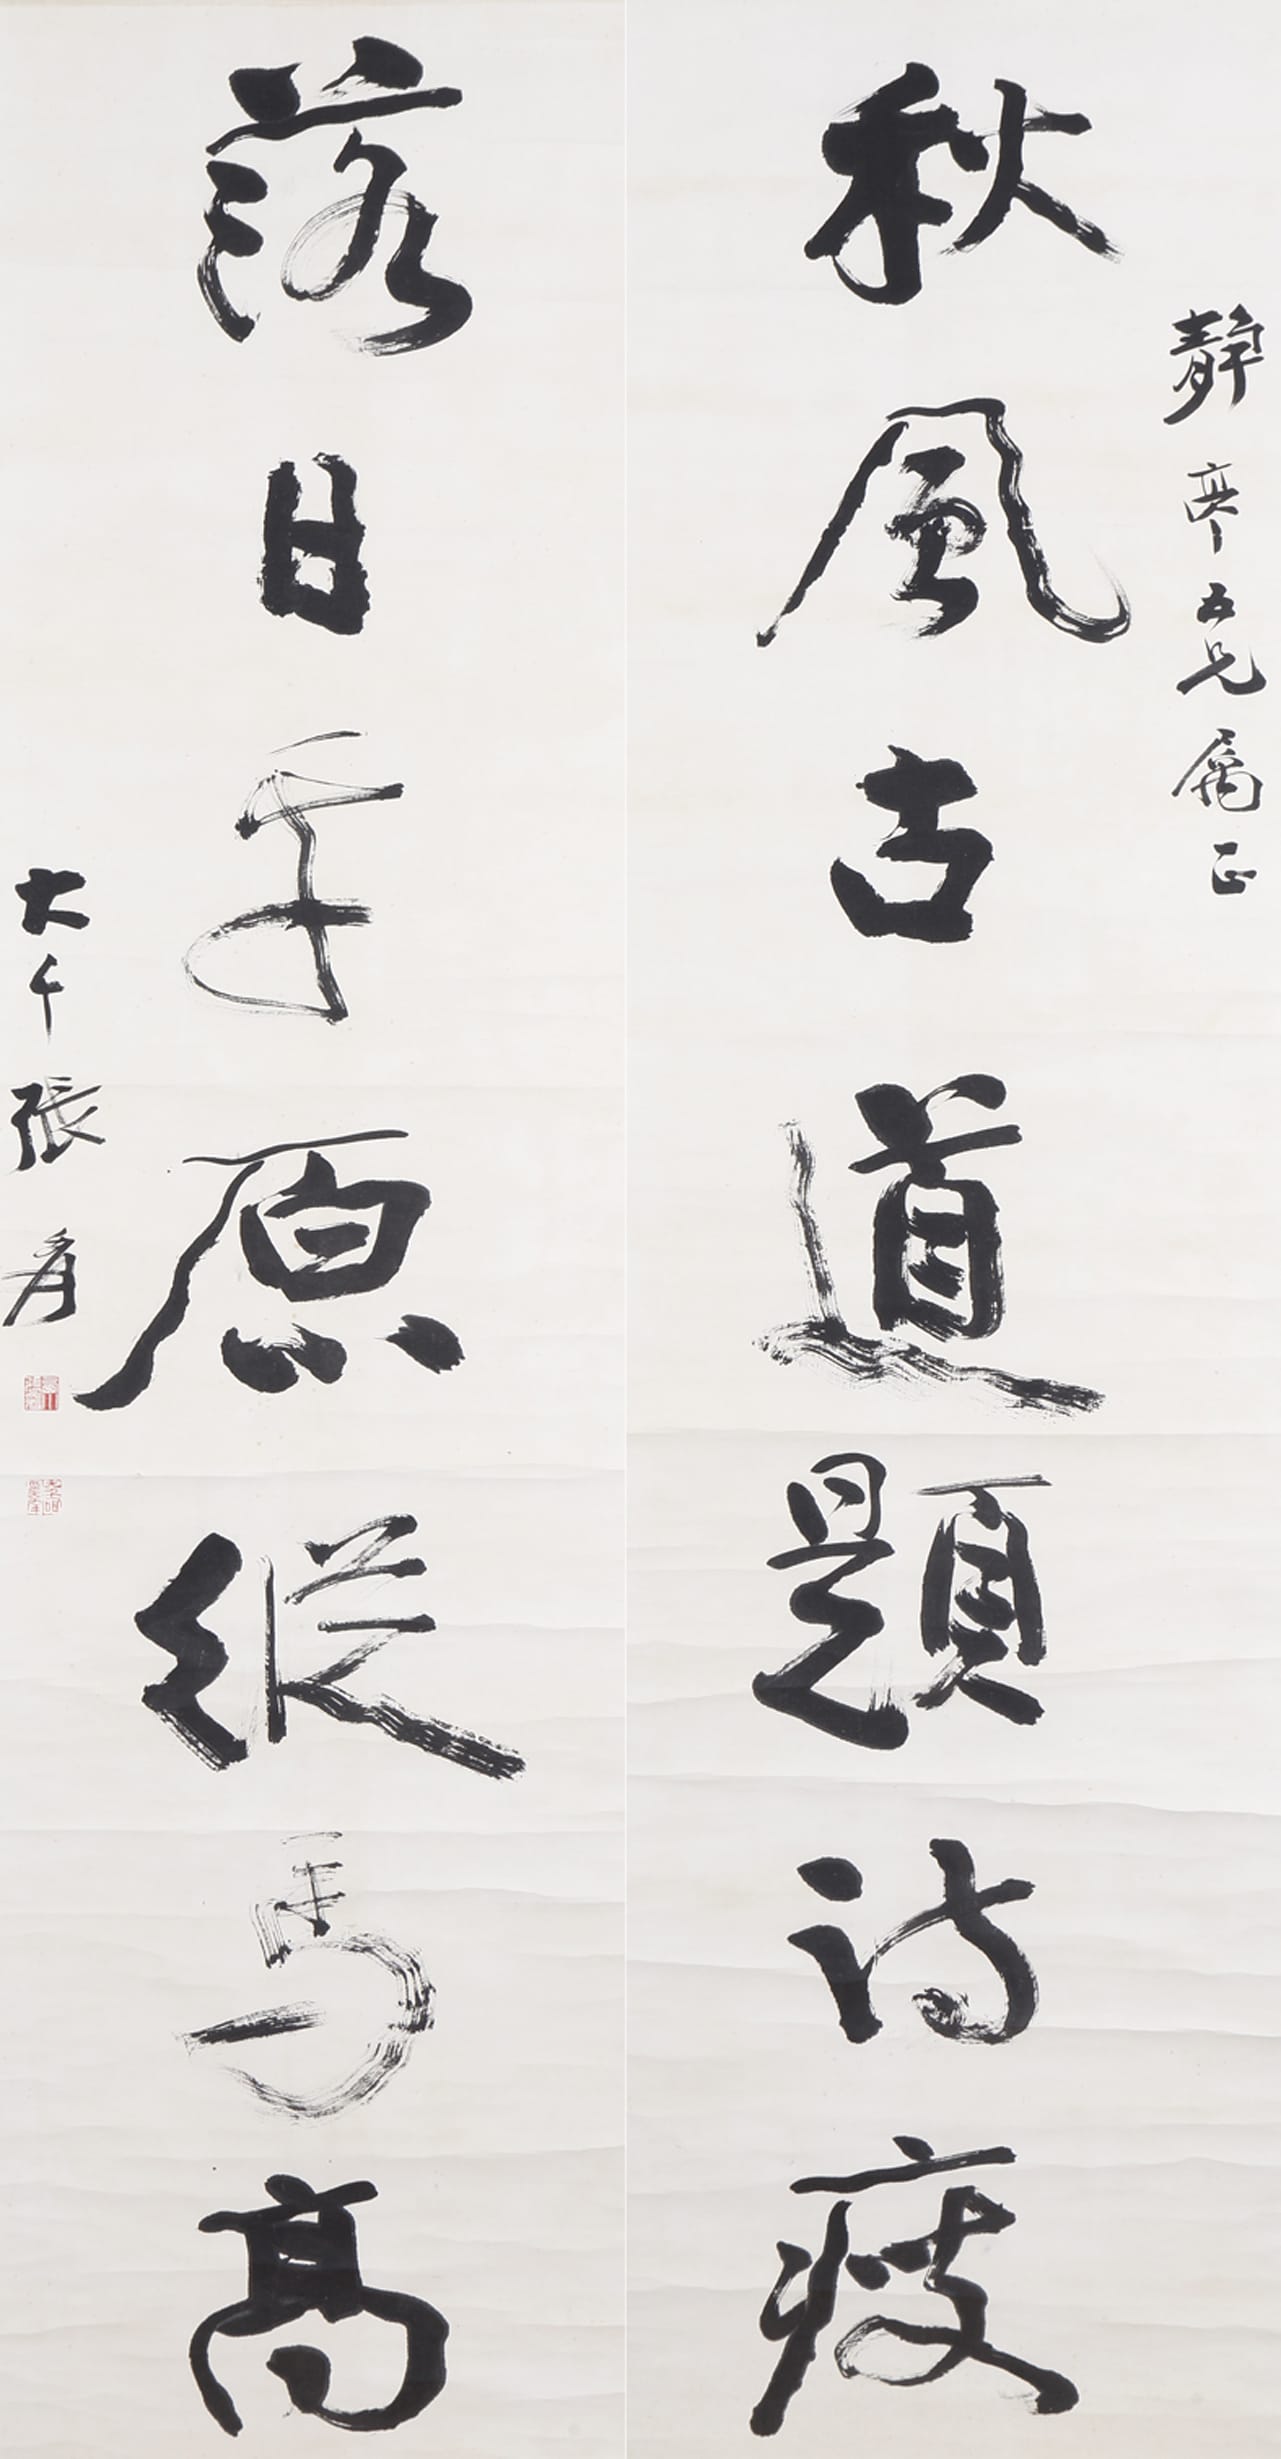 靜亭五兄屬正
秋風古道題詩瘦
落日平原縱馬高
大千張爰